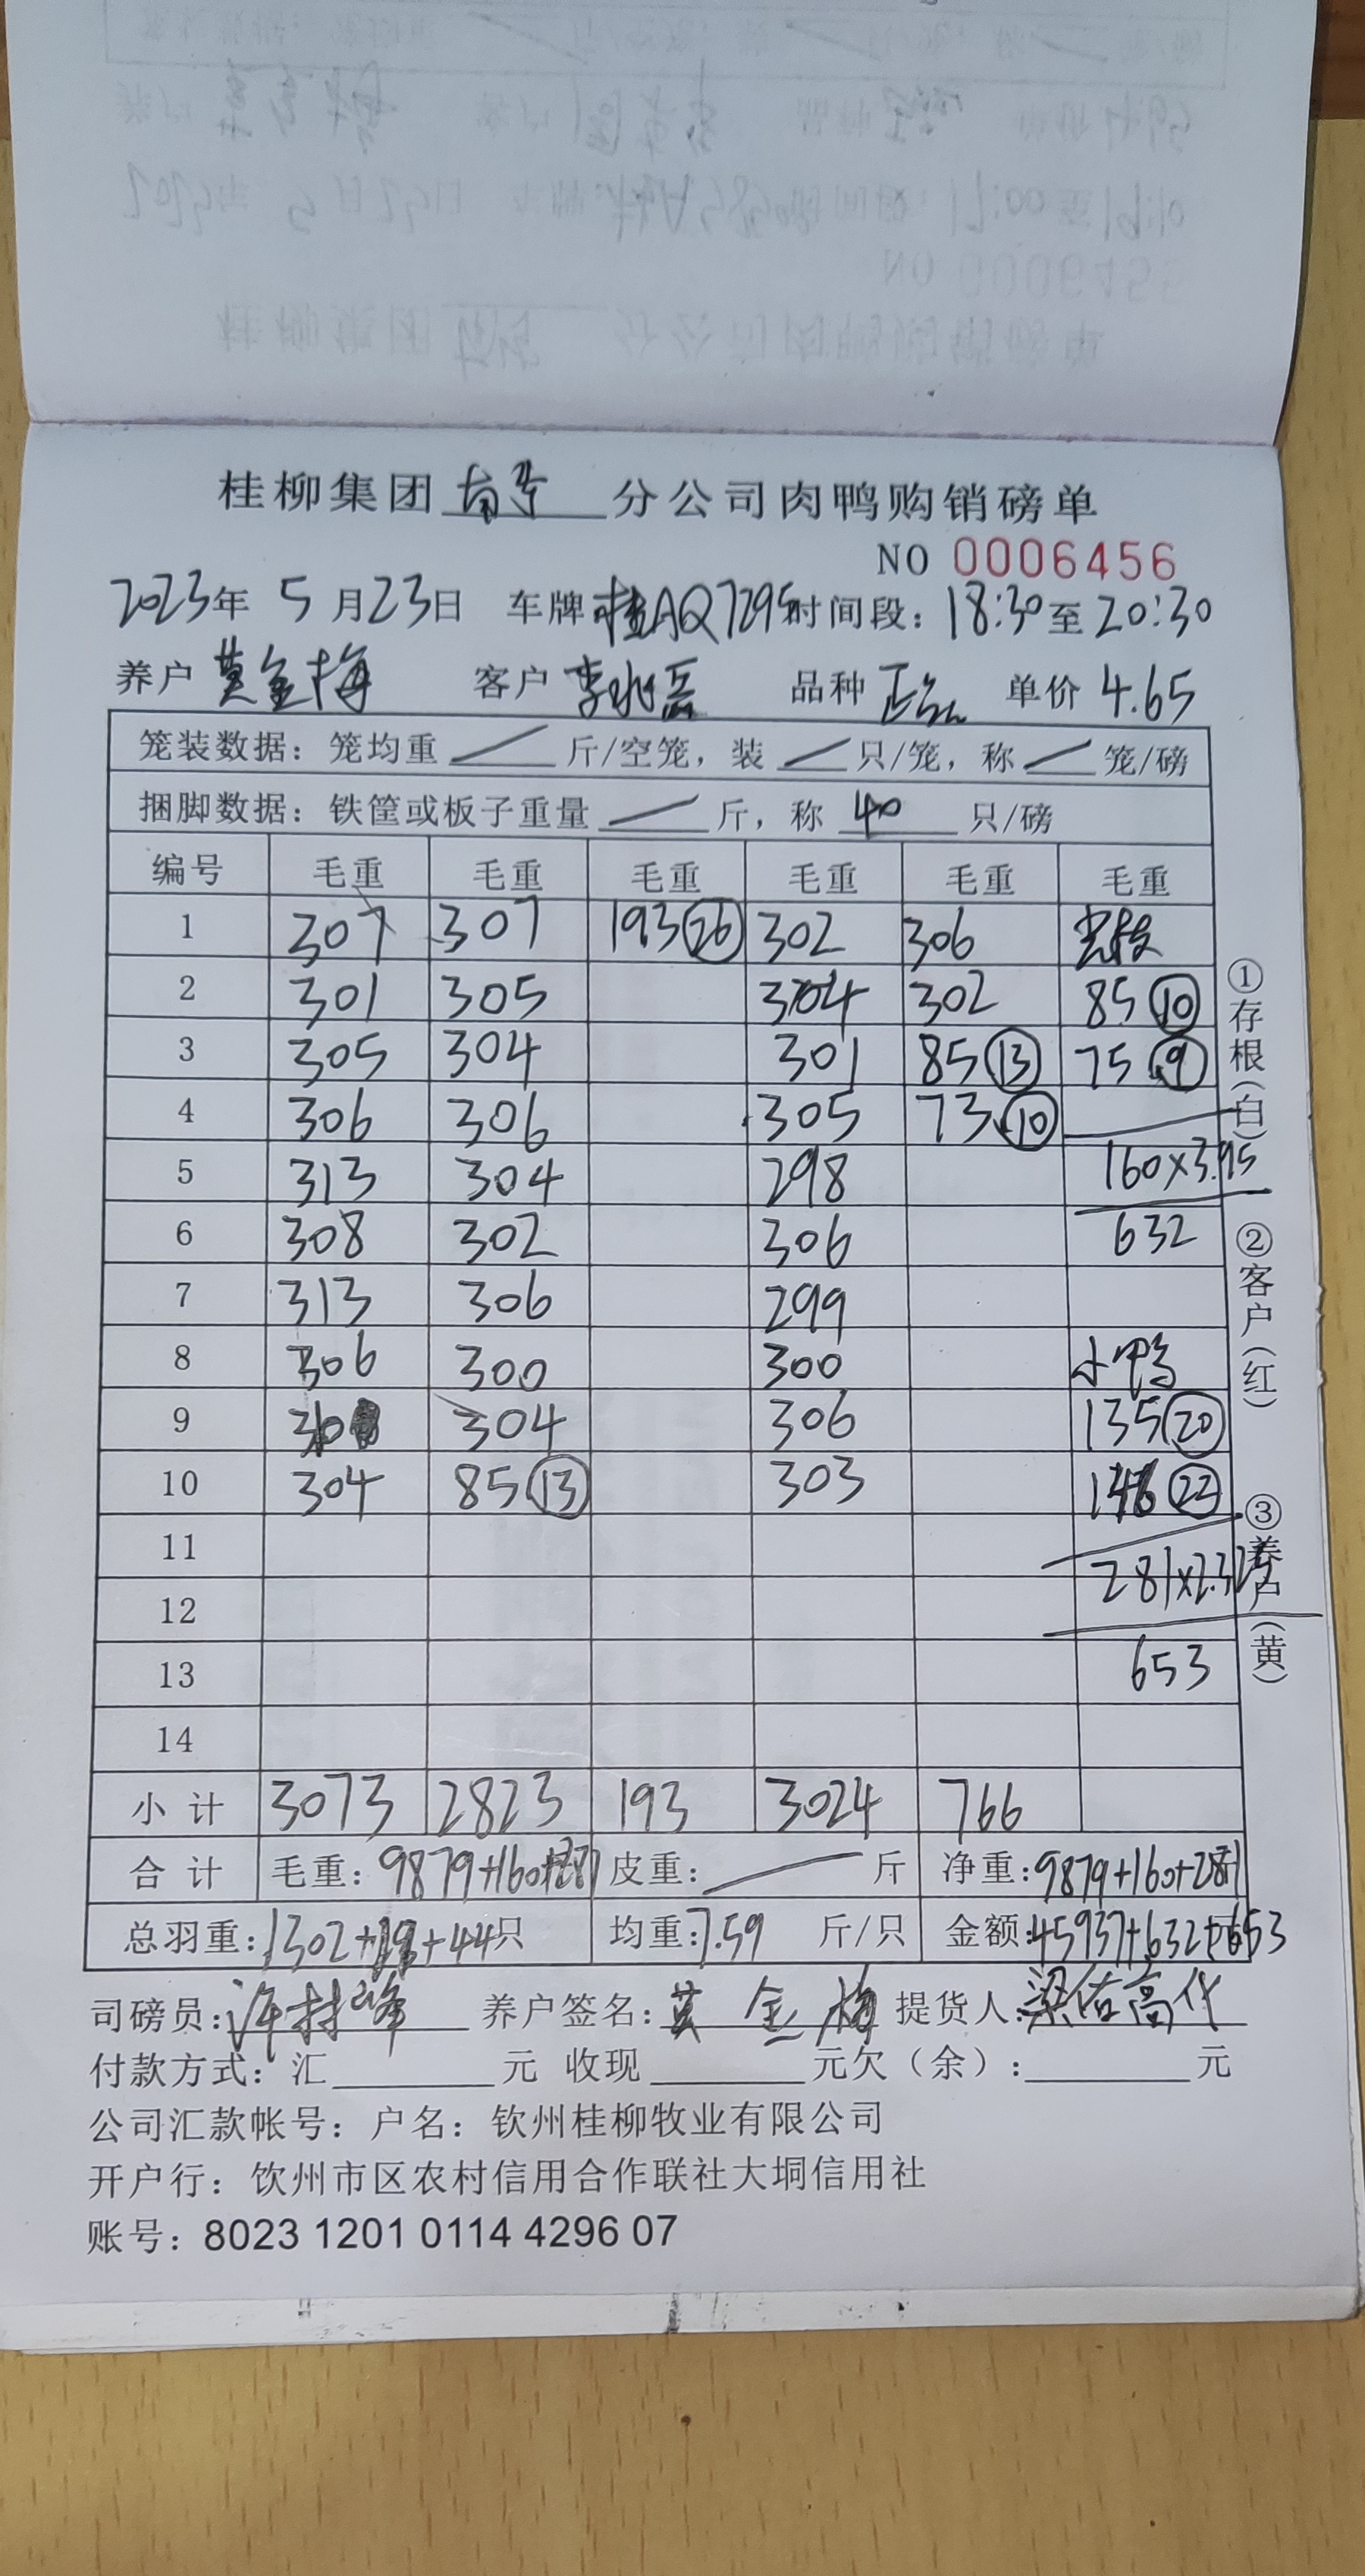 桂柳集团 南宁 分公司肉鸭购销磅单
NO 0006456
2023年 5月23日 车牌 桂AQ7295 时间段：18:30至20:30
养户 莫金梅 客户 李 品种 正品 单价 4.65
笼装数据：笼均重 斤/空笼，装 只/笼，称 笼/磅
捆脚数据：铁筐或板子重量 斤，称 40 只/磅
编号 毛重 毛重 毛重 毛重 毛重 毛重
1 307 307 193(26) 302 306
2 301 305 304 302 85(10)
3 305 304 301 85(13) 75(9)
4 306 306 305 73(10)
5 313 304 298 160×3.95
6 308 302 306 632
7 313 306 299
8 306 300 300 小鸭
9 304 306 135(20)
10 304 85(13) 303 146(22)
11
12 281×2.325
13 653
14
小计 3073 2823 193 3024 766
合计 毛重：9879+160+281 皮重： 斤 净重：9879+160+281
总羽重：1302+19+44只 均重：7.59 斤/只 金额：45937+632+653
司磅员： 养户签名：莫金梅 提货人：梁佑高代
付款方式：汇 元 收现 元欠（余）： 元
公司汇款帐号：户名：钦州桂柳牧业有限公司
开户行：饮州市区农村信用合作联社大垌信用社
账号：8023 1201 0114 4296 07
①存根（白）
②客户（红）
③养户（黄）